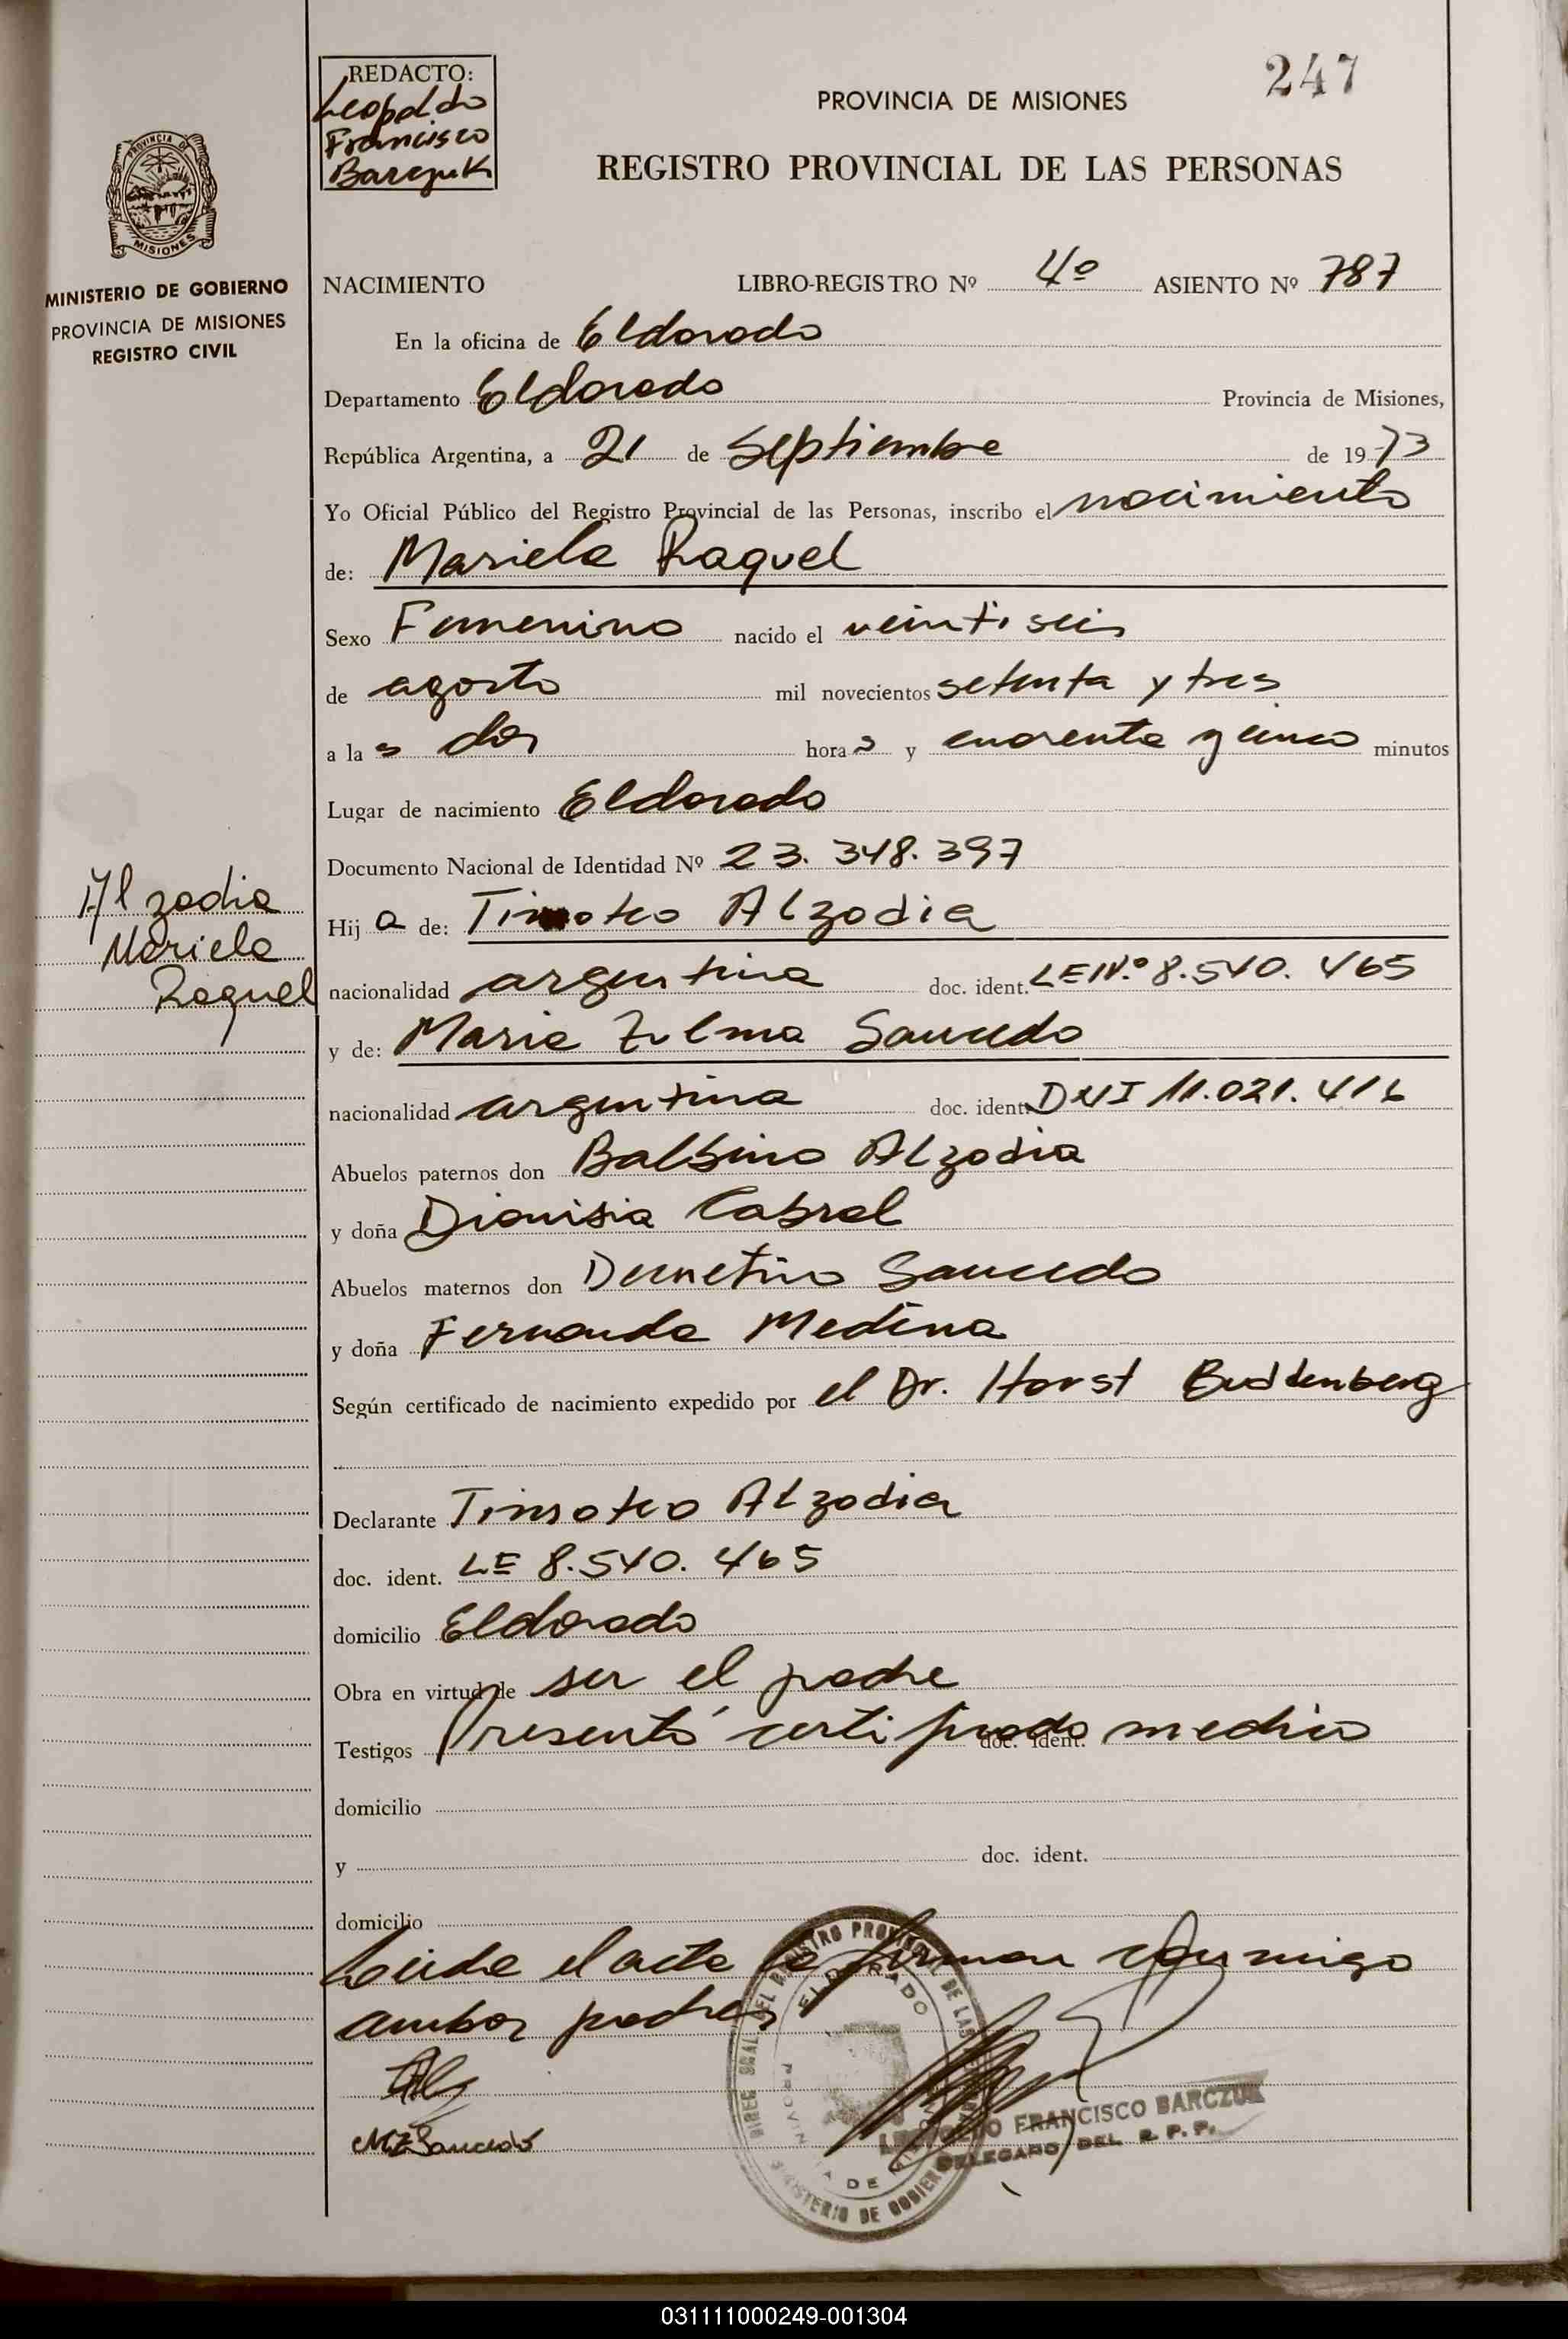 247
REDACTO:
Leopoldo
Francisco
Barczuk
PROVINCIA DE MISIONES
REGISTRO PROVINCIAL DE LAS PERSONAS
PROVINCIA DE
MISIONES
MINISTERIO DE GOBIERNO
PROVINCIA DE MISIONES
REGISTRO CIVIL
NACIMIENTO LIBRO-REGISTRO Nº 4º ASIENTO Nº 787
En la oficina de Eldorado
Departamento Eldorado Provincia de Misiones,
República Argentina, a 21 de Septiembre de 1973
Yo Oficial Público del Registro Provincial de las Personas, inscribo el nacimiento
de: Mariela Raquel
Sexo Femenino nacido el veintiseis
de agosto mil novecientos setenta y tres
a las dos horas y cuarenta y cinco minutos
Lugar de nacimiento Eldorado
Documento Nacional de Identidad Nº 23.348.397
Alzodia
Mariela
Raquel
Hija de: Timoteo Alzodia
nacionalidad argentina doc. ident. LE Nº 8.540.465
y de: Maria Zulma Saucedo
nacionalidad argentina doc. ident. DNI 11.021.416
Abuelos paternos don Balbino Alzodia
y doña Dionisia Cabral
Abuelos maternos don Demetrio Saucedo
y doña Fernanda Medina
Según certificado de nacimiento expedido por el Dr. Horst Buddenberg
Declarante Timoteo Alzodia
doc. ident. LE 8.540.465
domicilio Eldorado
Obra en virtud de ser el padre
Testigos Presentó certificado medico doc. ident.
domicilio
y doc. ident.
domicilio
Leida el acta la firman conmigo
ambos padres
MZSaucedo
DIREC. GRAL. DEL REGISTRO PROVINCIAL DE LAS PERSONAS
ELDORADO
PROVINCIA DE MISIONES
MINISTERIO DE GOBIERNO
LEOPOLDO FRANCISCO BARCZUK
DELEGADO DEL R. P. P.
031111000249-001304